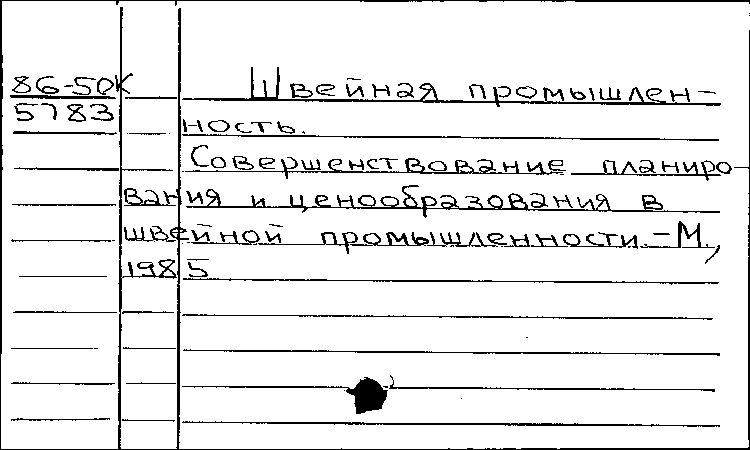 86-50К Швейная промышлен-
5783
ность.
Совершенствование планиро-
вания и ценообразования в
швейной промышленности. - М.,
1985